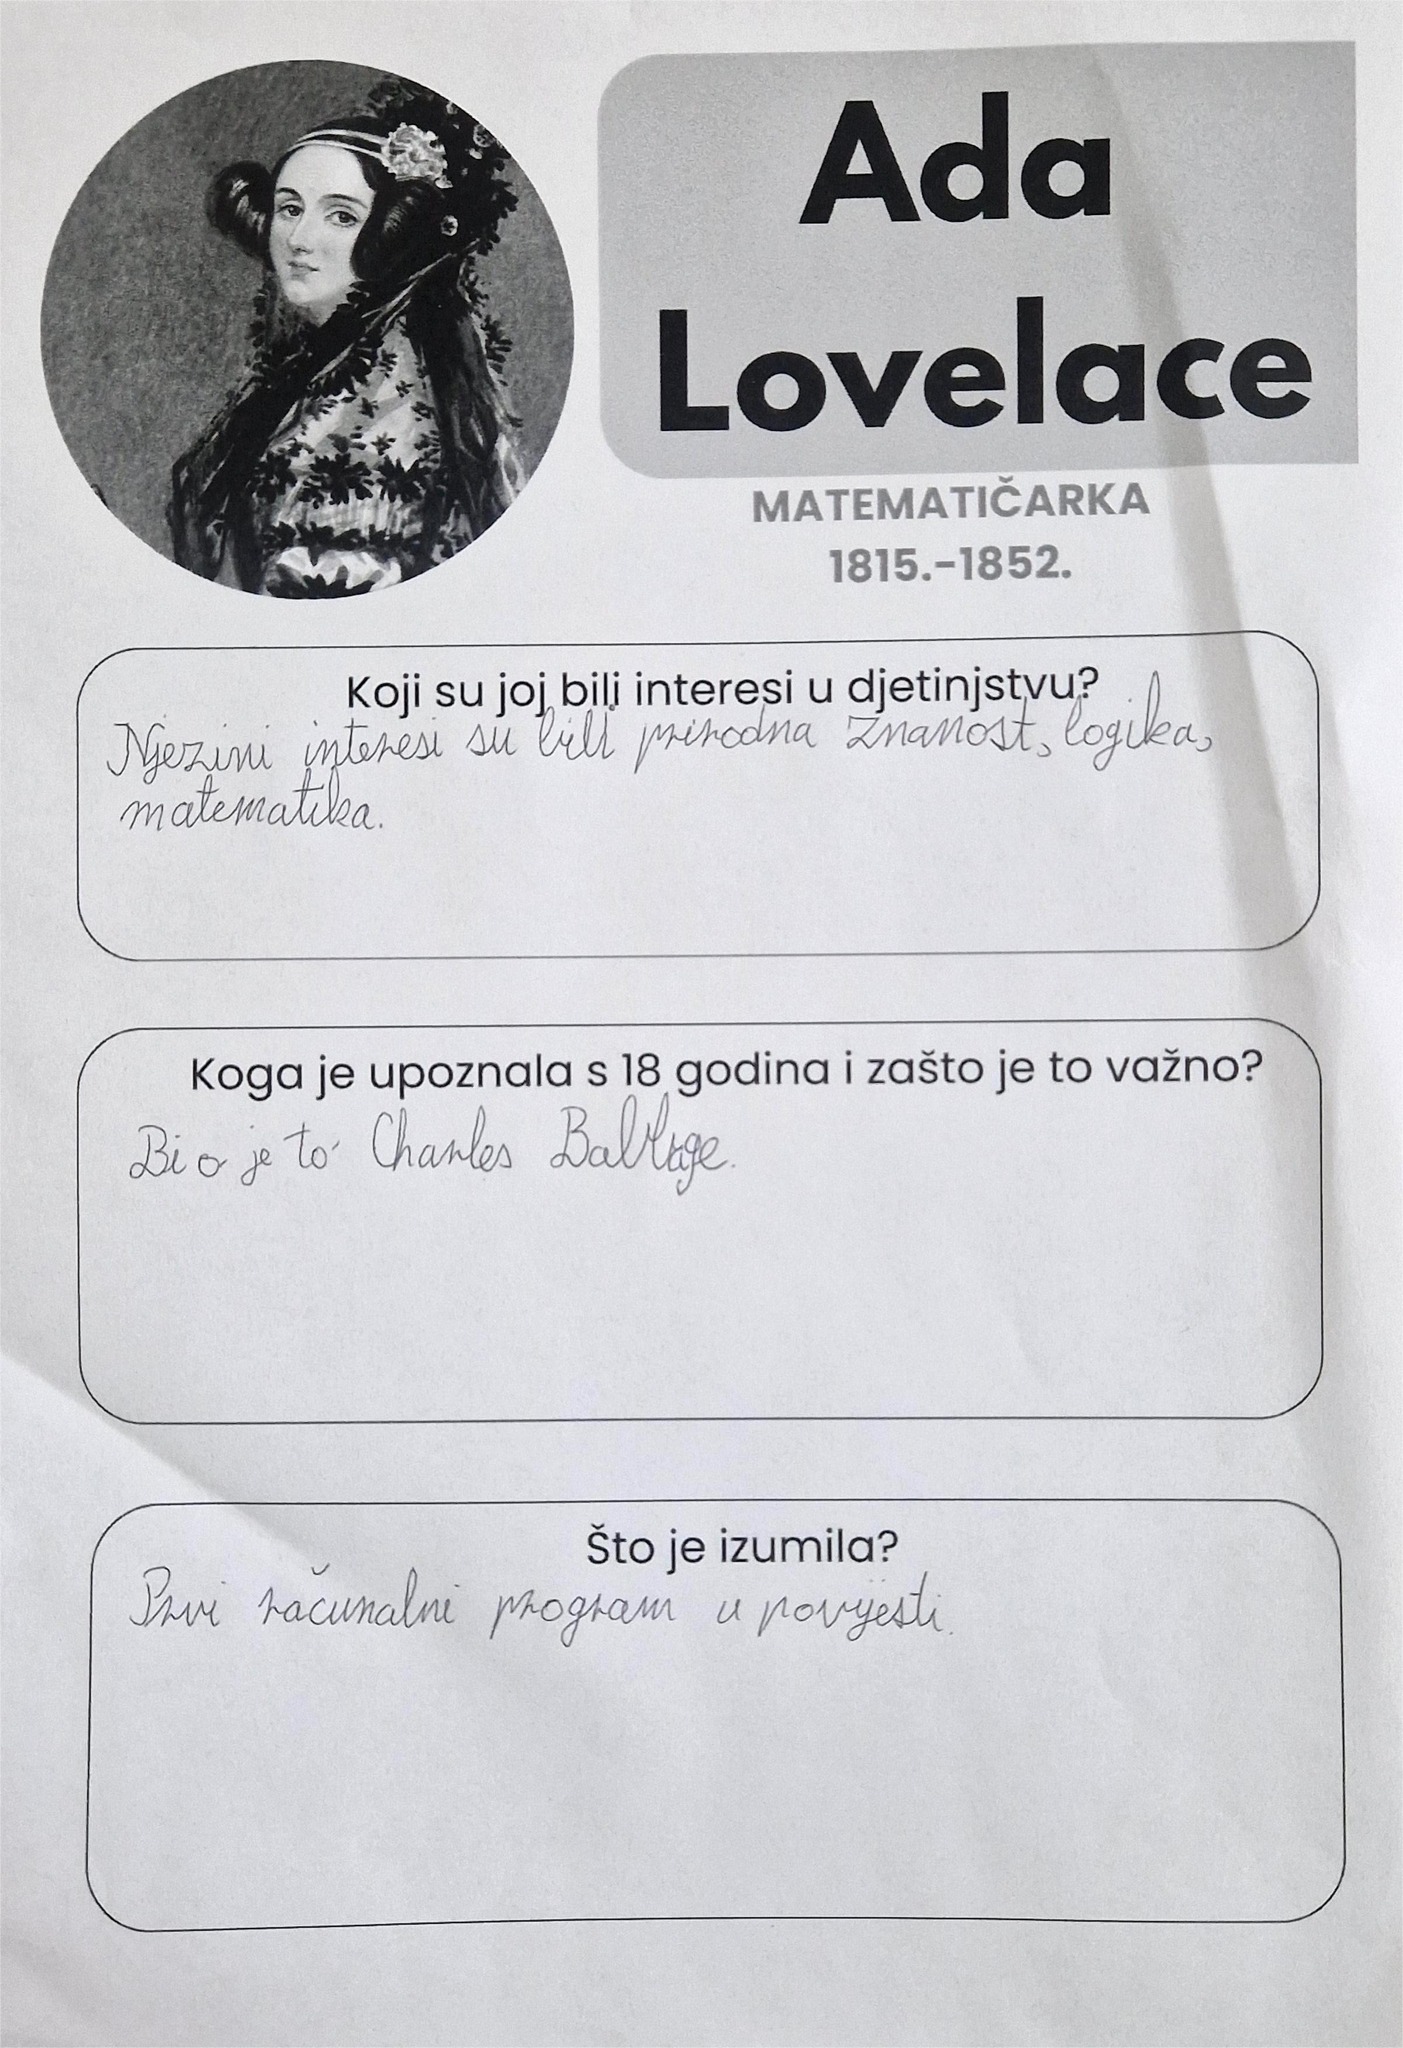 Ada
Lovelace
MATEMATIČARKA
1815.-1852.
Koji su joj bili interesi u djetinjstvu?
Njezini interesi su bili prirodna znanost, logika,
matematika.
Koga je upoznala s 18 godina i zašto je to važno?
Bio je to Charles Babbage.
Što je izumila?
Prvi računalni program u povijesti.